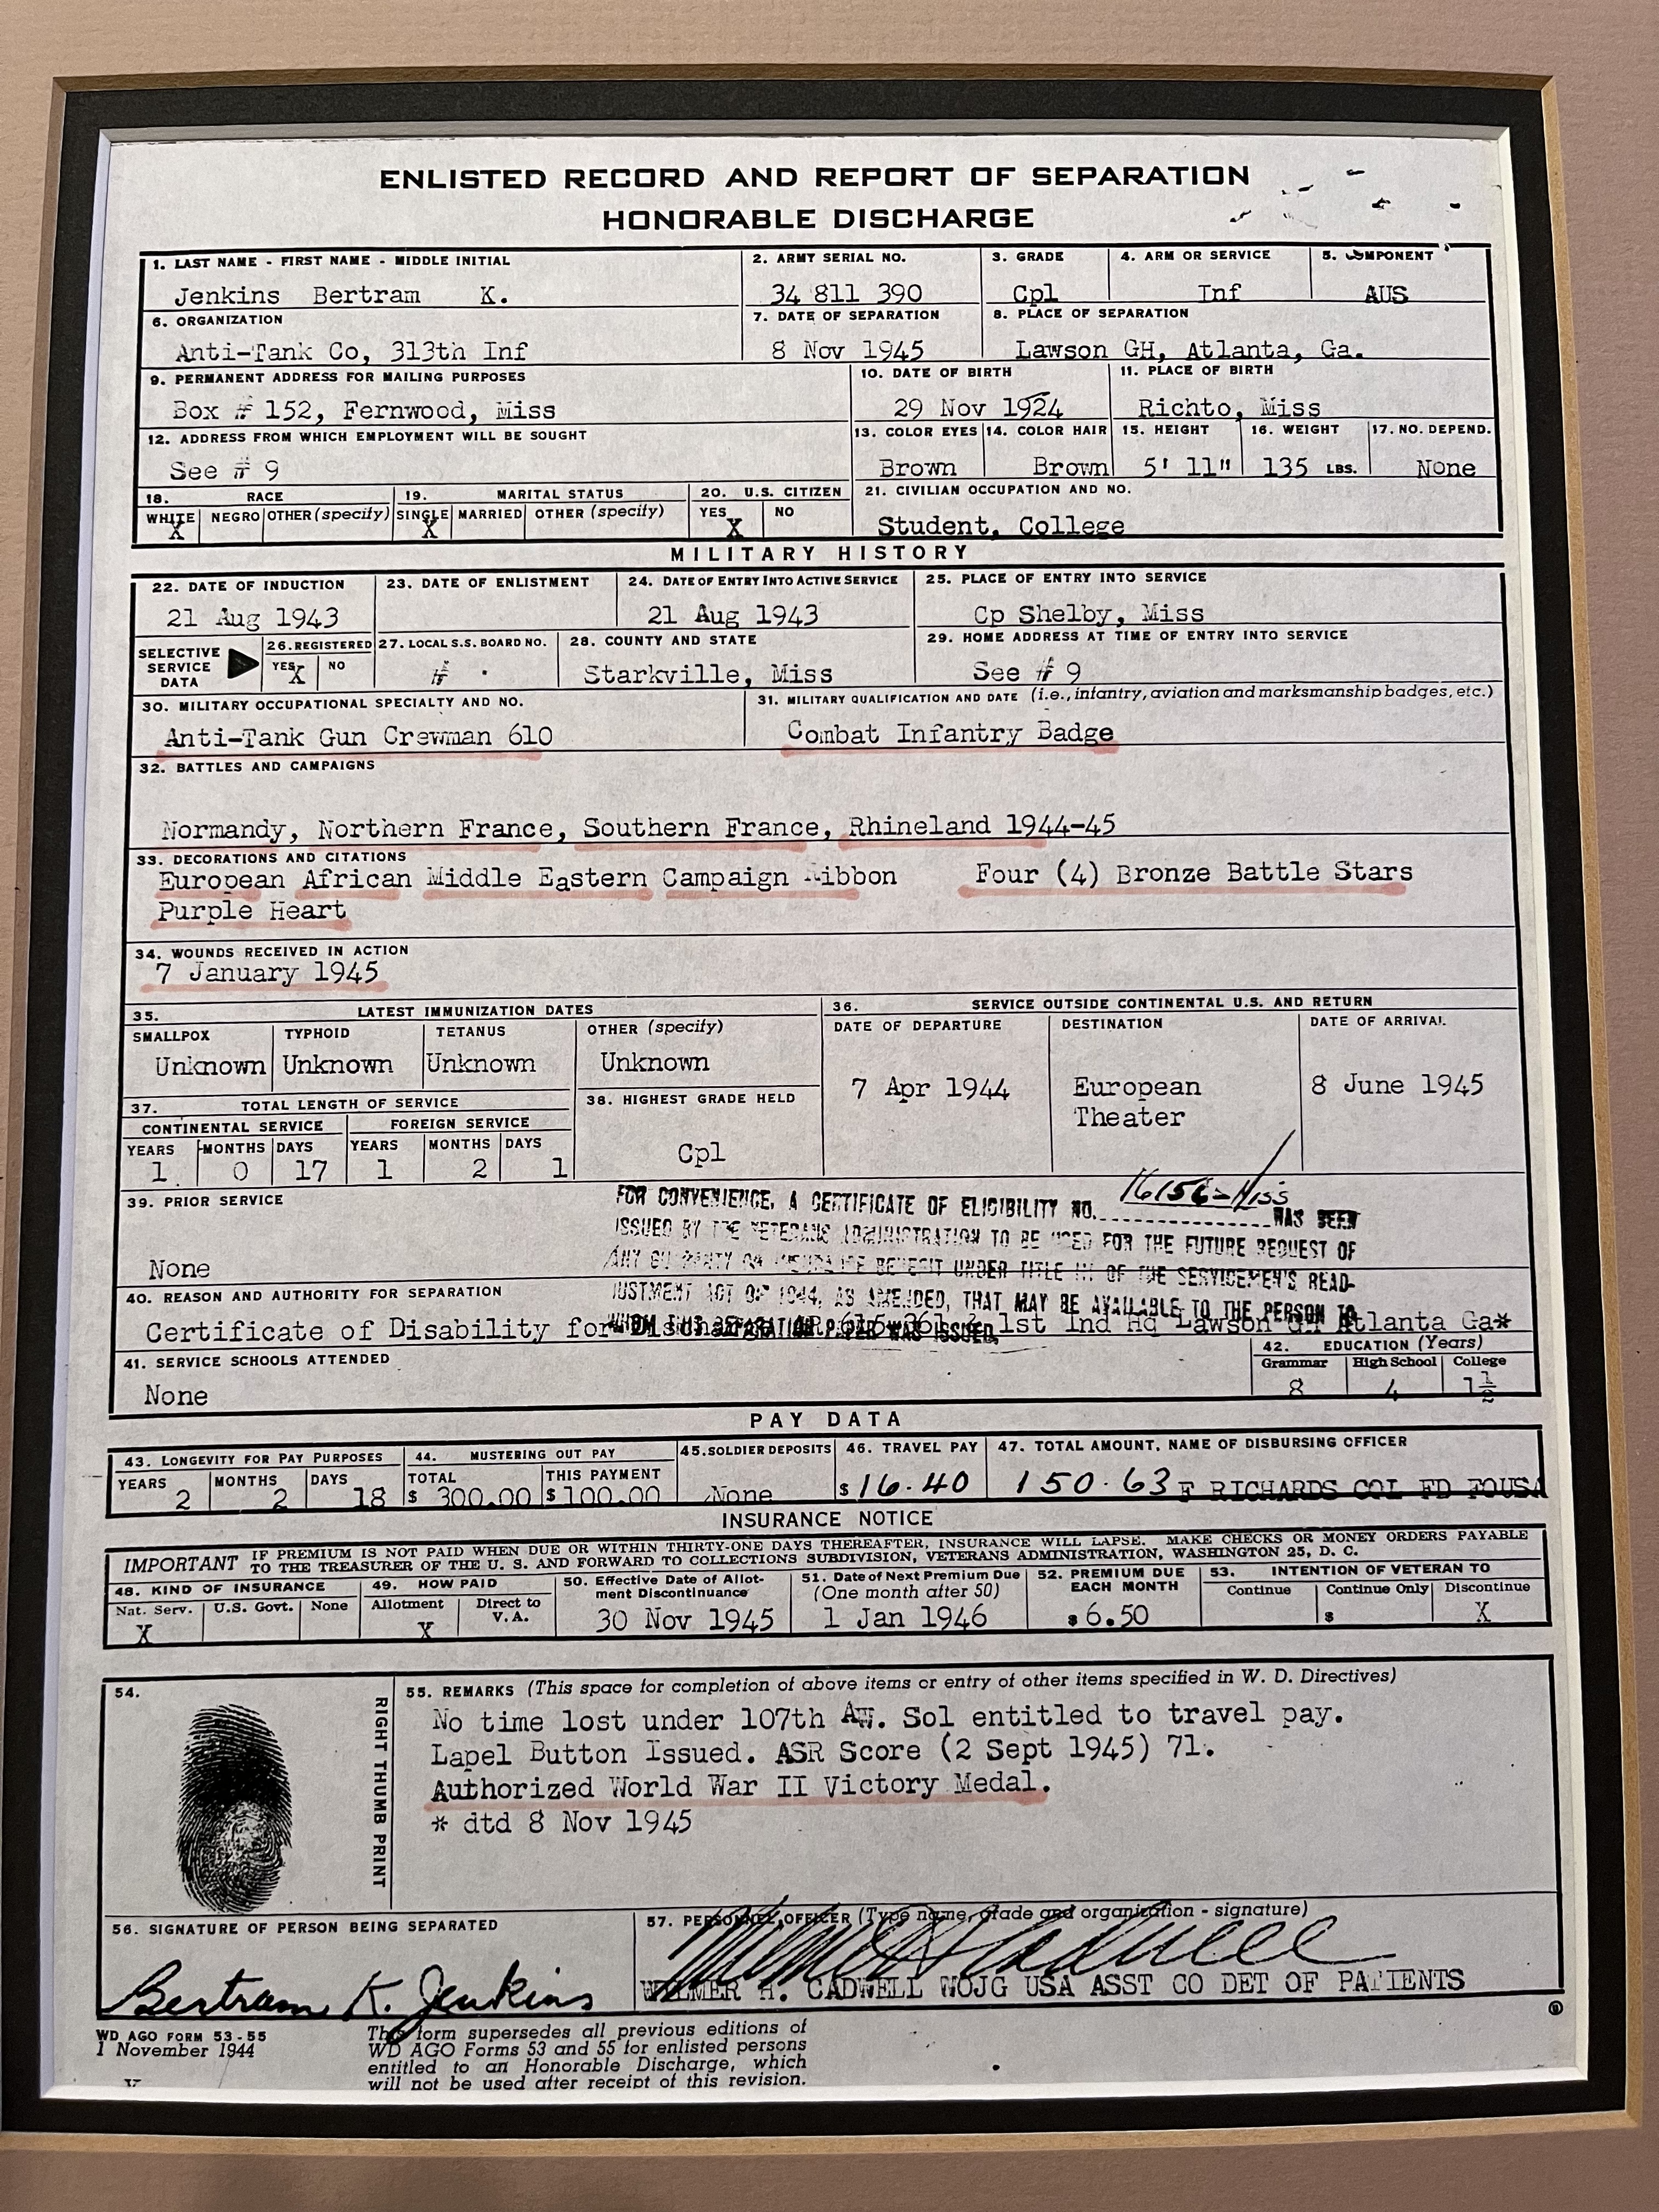 ENLISTED RECORD AND REPORT OF SEPARATION
HONORABLE DISCHARGE
1. LAST NAME - FIRST NAME - MIDDLE INITIAL
Jenkins Bertram K.
2. ARMY SERIAL NO.
34 811 390
3. GRADE
Cpl
4. ARM OR SERVICE
Inf
5. COMPONENT
AUS
6. ORGANIZATION
Anti-Tank Co, 313th Inf
7. DATE OF SEPARATION
8 Nov 1945
8. PLACE OF SEPARATION
Lawson GH, Atlanta, Ga.
9. PERMANENT ADDRESS FOR MAILING PURPOSES
Box # 152, Fernwood, Miss
10. DATE OF BIRTH
29 Nov 1924
11. PLACE OF BIRTH
Richto, Miss
12. ADDRESS FROM WHICH EMPLOYMENT WILL BE SOUGHT
See # 9
13. COLOR EYES
Brown
14. COLOR HAIR
Brown
15. HEIGHT
5' 11"
16. WEIGHT
135 LBS.
17. NO. DEPEND.
None
18. RACE
WHITE NEGRO OTHER (specify)
X
19. MARITAL STATUS
SINGLE MARRIED OTHER (specify)
X
20. U.S. CITIZEN
YES NO
X
21. CIVILIAN OCCUPATION AND NO.
Student, College
MILITARY HISTORY
22. DATE OF INDUCTION
21 Aug 1943
23. DATE OF ENLISTMENT
24. DATE OF ENTRY INTO ACTIVE SERVICE
21 Aug 1943
25. PLACE OF ENTRY INTO SERVICE
Cp Shelby, Miss
SELECTIVE SERVICE DATA
26. REGISTERED
YES NO
X
27. LOCAL S.S. BOARD NO.
# .
28. COUNTY AND STATE
Starkville, Miss
29. HOME ADDRESS AT TIME OF ENTRY INTO SERVICE
See # 9
30. MILITARY OCCUPATIONAL SPECIALTY AND NO.
Anti-Tank Gun Crewman 610
31. MILITARY QUALIFICATION AND DATE (i.e., infantry, aviation and marksmanship badges, etc.)
Combat Infantry Badge
32. BATTLES AND CAMPAIGNS
Normandy, Northern France, Southern France, Rhineland 1944-45
33. DECORATIONS AND CITATIONS
European African Middle Eastern Campaign Ribbon Four (4) Bronze Battle Stars
Purple Heart
34. WOUNDS RECEIVED IN ACTION
7 January 1945
35. LATEST IMMUNIZATION DATES
SMALLPOX TYPHOID TETANUS OTHER (specify)
Unknown Unknown Unknown Unknown
36. SERVICE OUTSIDE CONTINENTAL U.S. AND RETURN
DATE OF DEPARTURE DESTINATION DATE OF ARRIVAL
7 Apr 1944 European Theater 8 June 1945
37. TOTAL LENGTH OF SERVICE
CONTINENTAL SERVICE FOREIGN SERVICE
YEARS MONTHS DAYS YEARS MONTHS DAYS
1 0 17 1 2 1
38. HIGHEST GRADE HELD
Cpl
39. PRIOR SERVICE
None
FOR CONVENIENCE, A CERTIFICATE OF ELIGIBILITY NO. WAS BEEN
ISSUED BY THE VETERANS ADMINISTRATION TO BE USED FOR THE FUTURE REQUEST OF
ANY GUARANTY OR INSURANCE BENEFIT UNDER TITLE III OF THE SERVICEMEN'S READ-
JUSTMENT ACT OF 1944, AS AMENDED, THAT MAY BE AVAILABLE TO THE PERSON TO
WHOM THIS SEPARATION PAPER WAS ISSUED.
40. REASON AND AUTHORITY FOR SEPARATION
Certificate of Disability for Discharge AR 1st Ind Hq Lawson GH Atlanta Ga*
41. SERVICE SCHOOLS ATTENDED
None
42. EDUCATION (Years)
Grammar High School College
8 4 1½
PAY DATA
43. LONGEVITY FOR PAY PURPOSES
YEARS MONTHS DAYS
2 2 18
44. MUSTERING OUT PAY
TOTAL THIS PAYMENT
$ 300.00 $ 100.00
45. SOLDIER DEPOSITS
None
46. TRAVEL PAY
$ 16.40
47. TOTAL AMOUNT, NAME OF DISBURSING OFFICER
150.63 F RICHARDS COL FD FOUSA
INSURANCE NOTICE
IMPORTANT IF PREMIUM IS NOT PAID WHEN DUE OR WITHIN THIRTY-ONE DAYS THEREAFTER, INSURANCE WILL LAPSE. MAKE CHECKS OR MONEY ORDERS PAYABLE
TO THE TREASURER OF THE U. S. AND FORWARD TO COLLECTIONS SUBDIVISION, VETERANS ADMINISTRATION, WASHINGTON 25, D. C.
48. KIND OF INSURANCE
Nat. Serv. U.S. Govt. None
X
49. HOW PAID
Allotment Direct to V.A.
X
50. Effective Date of Allotment Discontinuance
30 Nov 1945
51. Date of Next Premium Due (One month after 50)
1 Jan 1946
52. PREMIUM DUE EACH MONTH
$ 6.50
53. INTENTION OF VETERAN TO
Continue Continue Only Discontinue
$ X
54.
RIGHT THUMB PRINT
55. REMARKS (This space for completion of above items or entry of other items specified in W. D. Directives)
No time lost under 107th AW. Sol entitled to travel pay.
Lapel Button Issued. ASR Score (2 Sept 1945) 71.
Authorized World War II Victory Medal.
* dtd 8 Nov 1945
56. SIGNATURE OF PERSON BEING SEPARATED
Bertram K. Jenkins
57. PERSONNEL OFFICER (Type name, grade and organization - signature)
WILMER H. CADWELL WOJG USA ASST CO DET OF PATIENTS
WD AGO FORM 53-55
1 November 1944
This form supersedes all previous editions of
WD AGO Forms 53 and 55 for enlisted persons
entitled to an Honorable Discharge, which
will not be used after receipt of this revision.